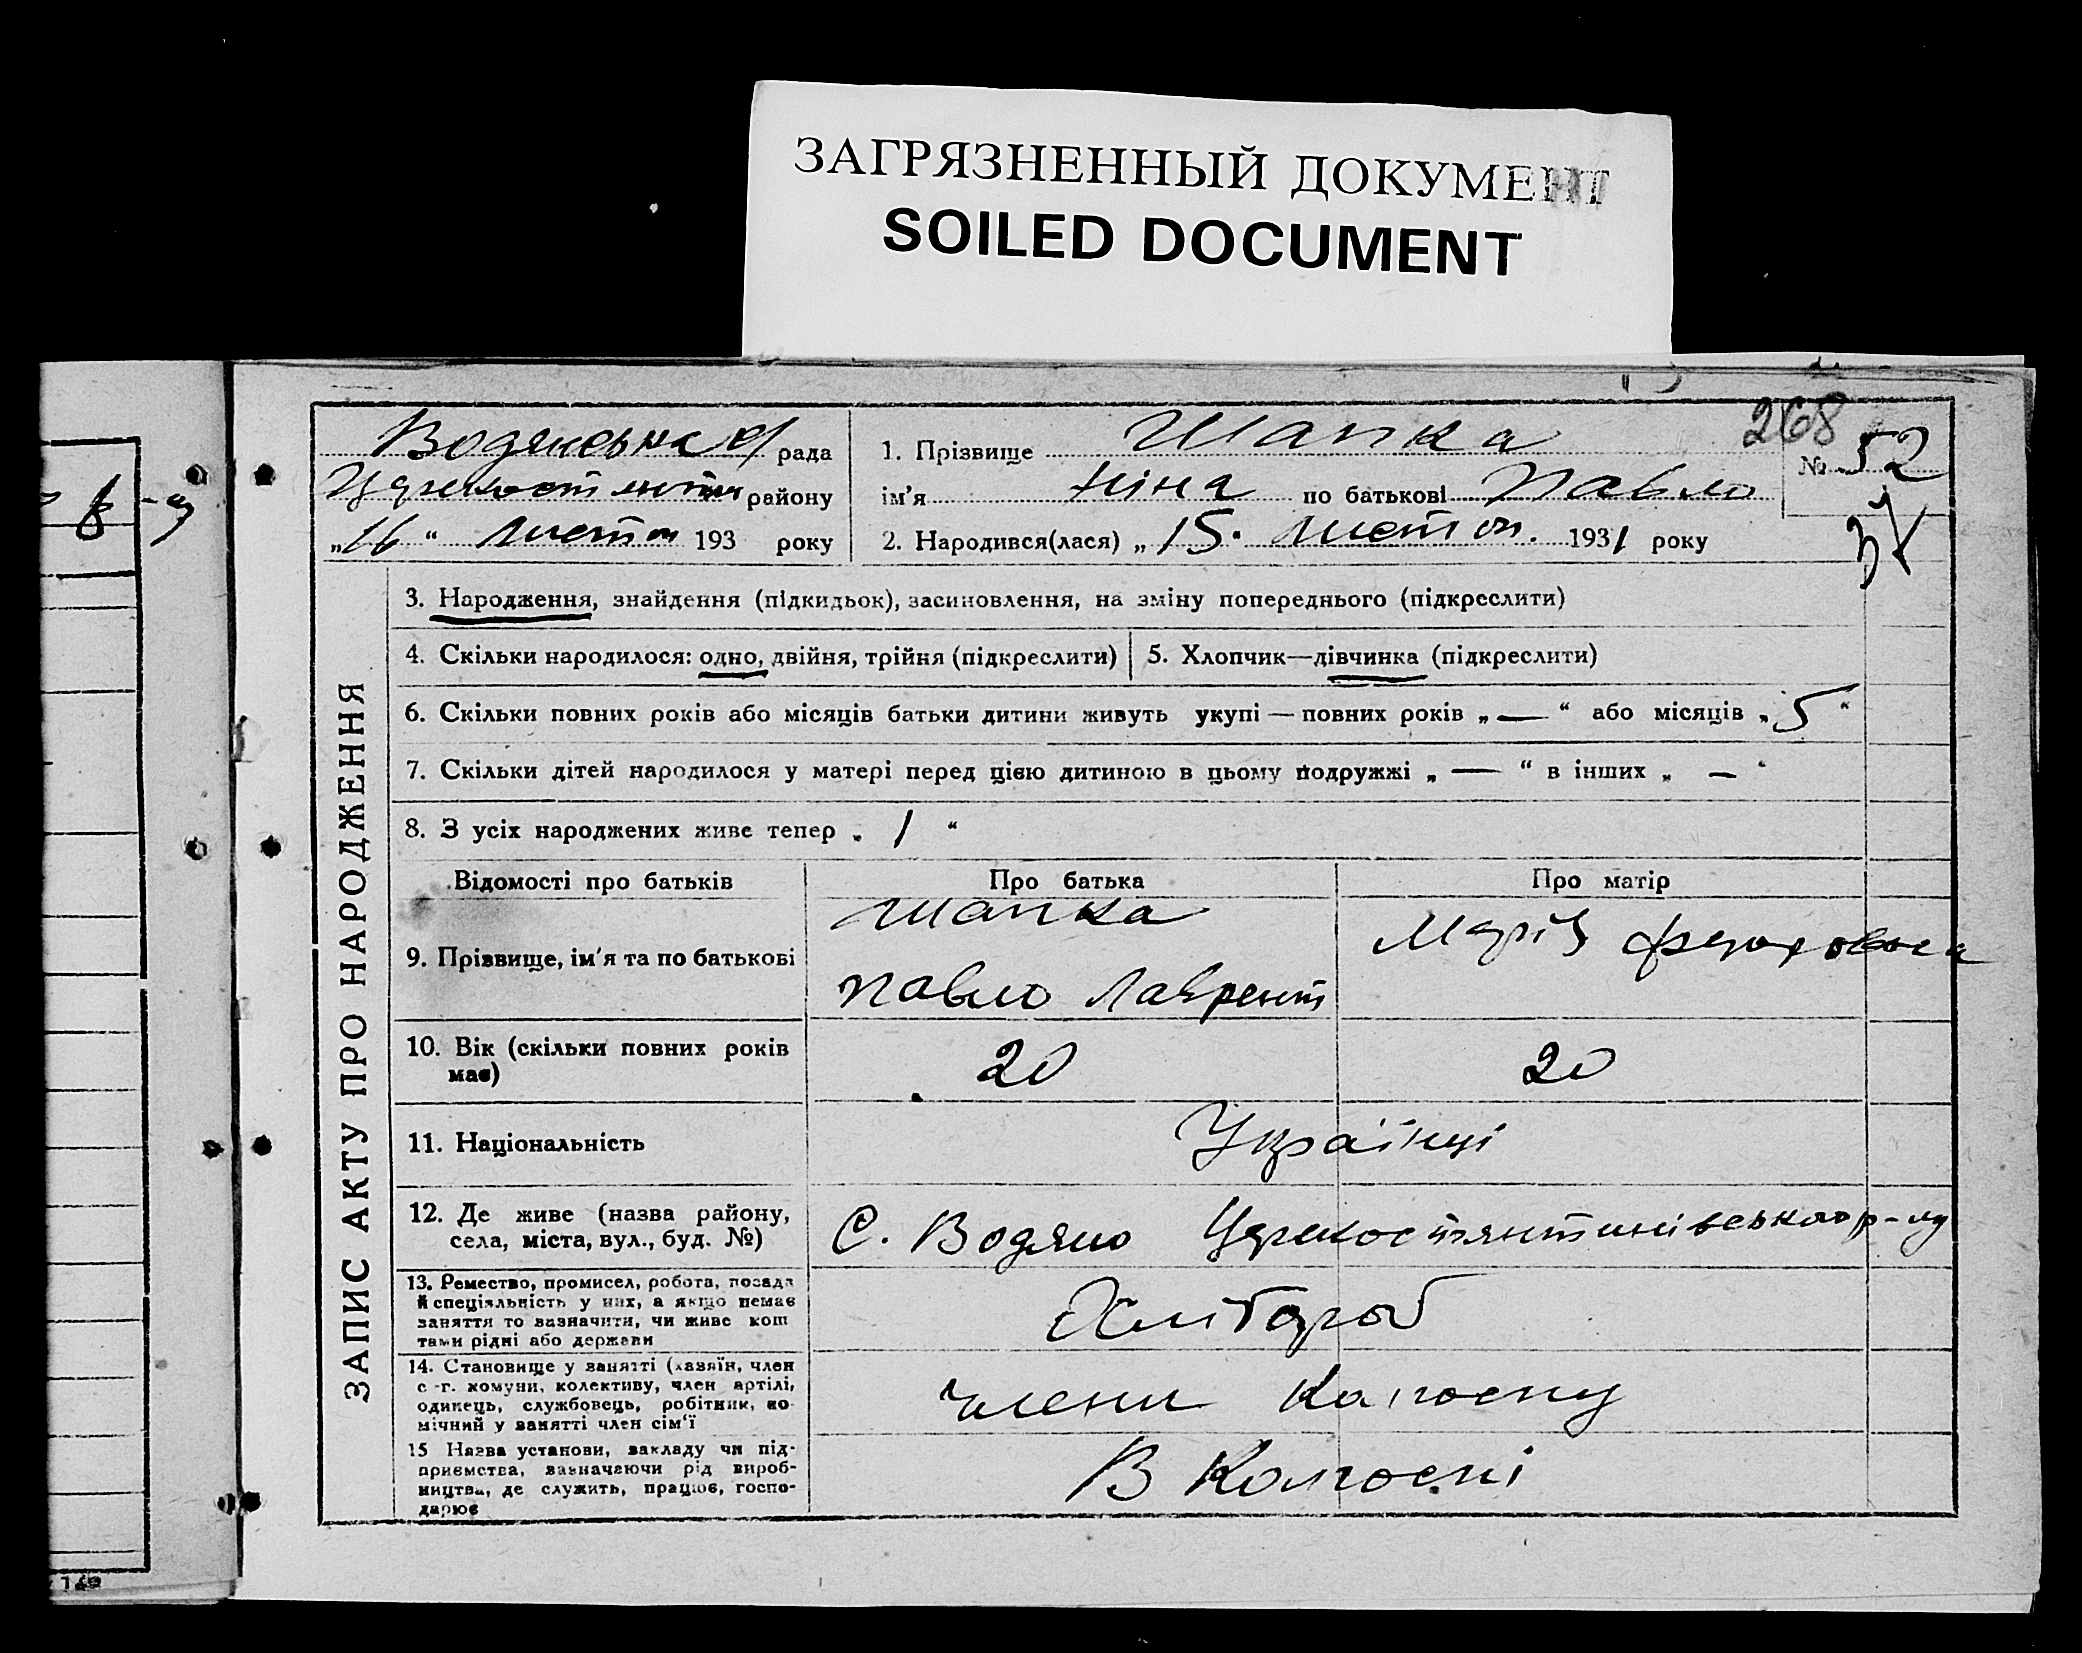 ЗАГРЯЗНЕННЫЙ ДОКУМЕНТ
SOILED DOCUMENT
268
Водянська с/рада
району
„16“ Листоп 193 року
1. Прізвище Шапка
ім'я Ніна по батькові Павло
2. Народився(лася) „15. Листоп. 1931 року
№ 52
3. Народження, знайдення (підкидьок), засиновлення, на зміну попереднього (підкреслити)
4. Скільки народилося: одно, двійня, трійня (підкреслити)
5. Хлопчик—дівчинка (підкреслити)
6. Скільки повних років або місяців батьки дитини живуть укупі — повних років „—“ або місяців „5“
7. Скільки дітей народилося у матері перед цією дитиною в цьому подружжі „—“ в інших „—“
8. З усіх народжених живе тепер „1“
ЗАПИС АКТУ ПРО НАРОДЖЕННЯ
Відомості про батьків
Про батька
Про матір
9. Прізвище, ім'я та по батькові
Шапка
Павло Лаврент
Марія
10. Вік (скільки повних років
має)
20
20
11. Національність
Українці
12. Де живе (назва району,
села, міста, вул., буд. №)
С. Водяно Царекостянтинівського р-ну
13. Ремество, промисел, робота, посада
й спеціяльність у них, а якщо немає
заняття то вазначити, чи живе кош
тами рідні або держави
Хлібороб
14. Становище у занятті (хазяїн, член
с-г. комуни, колективу, член артілі,
одинець, службовець, робітник, по-
мічний у занятті член сім'ї
члени Колгоспу
15 Назва установи, закладу чи під-
приємства, вазначаючи рід вироб-
ництва, де служить, працює, госпо-
дарює
В Колгоспі
149